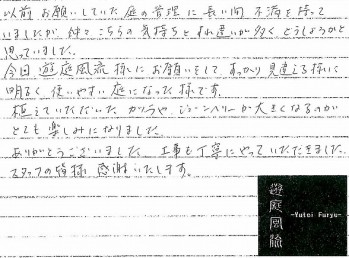 以前お願いしていた庭の管理に長い間不満を持って
いましたが、仲々こちらの気持ちとすれ違いが多く、どうしようかと
思っていました。
今回遊庭風流様にお願いをして、すっかり見違える様に
明るく、使いやすい庭になった様です。
植えていただいたカツラや、ジューンベリーが大きくなるのが
とても楽しみになりました。
ありがとうございました。工事も丁寧にやっていただきました。
スタッフの皆様 感謝いたします。
遊庭風流
-Yutei Furyu-